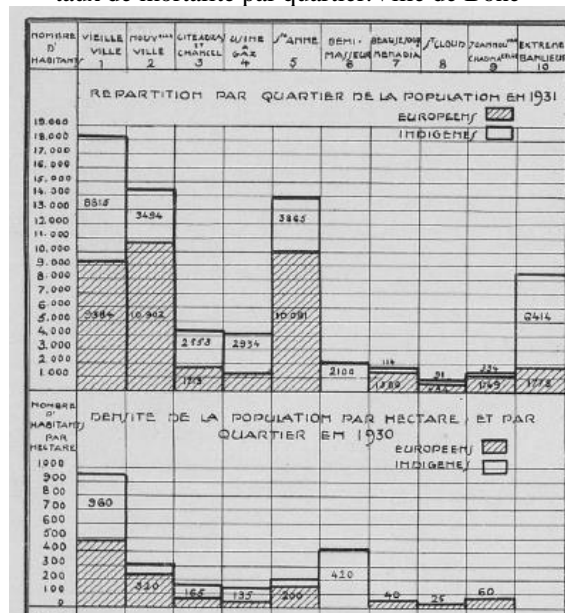 taux de mortalité par quartier. Ville de Bône
NOMBRE D' HABITANTS
VIEILLE VILLE 1
NOUVelle VILLE 2
CITEADRA ET CHANCEL 3
USINE A GAZ 4
Ste ANNE 5
DEMI-MASSEUR 6
BEAUSEJOUR MENADIA 7
St CLOUD 8
9
EXTREME BANLIEUE 10
REPARTITION PAR QUARTIER DE LA POPULATION EN 1931
EUROPEENS
INDIGENES
19.000
18.000
17.000
16.000
15.000
14.000
13.000
12.000
11.000
10.000
9.000
8.000
7.000
6.000
5.000
4.000
3.000
2.000
1.000
8815
3494
3865
9384
10.902
10.081
6414
2553
2934
2100
114
91
334
1713
1380
1049
1778
NOMBRE D' HABITANTS PAR HECTARE
DENSITE DE LA POPULATION PAR HECTARE, ET PAR
QUARTIER EN 1930
EUROPEENS
INDIGENES
1000
900
800
700
600
500
400
300
200
100
0
960
320
165
135
200
420
40
25
60